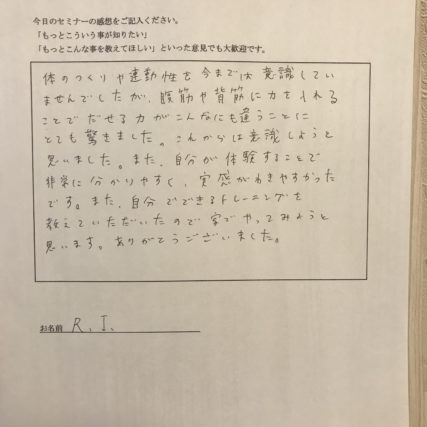 今日のセミナーの感想をご記入ください。
「もっとこういう事が知りたい」
「もっとこんな事を教えてほしい」といった意見でも大歓迎です。
体のつくりや連動性を今までは意識してい
ませんでしたが、腹筋や背筋に力を入れる
ことでだせる力がこんなにも違うことに
とても驚きました。これからは意識しようと
思いました。また、自分が体験することで
非常に分かりやすく、実感がわきやすかった
です。また、自分でできるトレーニングを
教えていただいたので家でやってみようと
思います。ありがとうございました。
お名前 R. I.